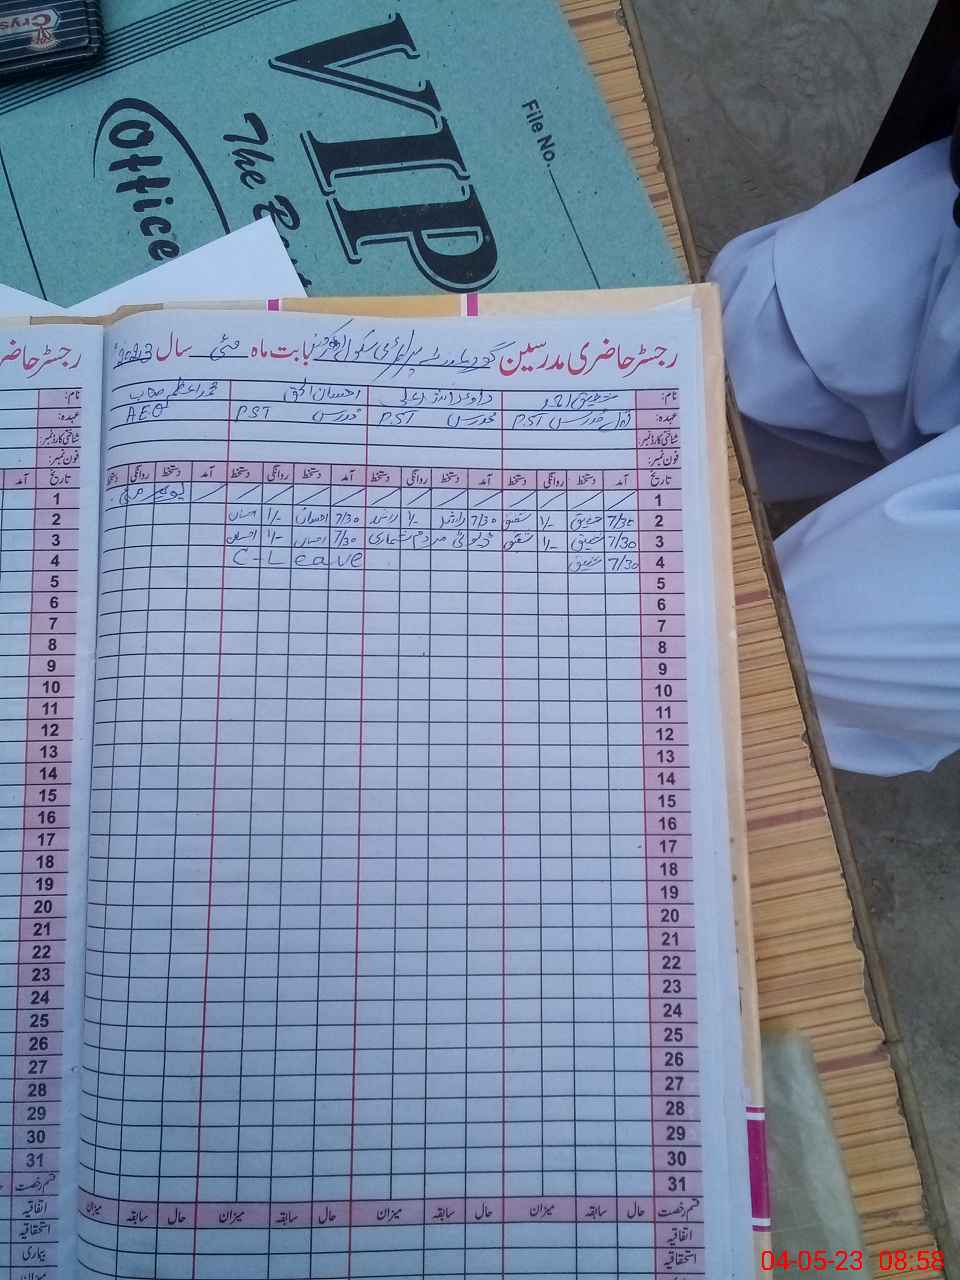 Crys
VIP
The
Office
File No.
رجسٹر حاضری مدرسین گورنمنٹ پرائمری سکول بابت ماہ مئی سال 2023ء
نام: شفیق احمد احسان الحق محمد اعظم صاحب
عہدہ: مدرس P.ST مدرس P.ST مدرس P.ST AEO
شناختی کارڈ نمبر:
فون نمبر:
تاریخ آمد دستخط روانگی دستخط آمد دستخط روانگی دستخط آمد دستخط روانگی دستخط آمد دستخط روانگی دستخط
1
2 7/30 شفیق 1/- شفیق 7/30 راشد 1/- راشد 7/30 احسان 1/- احسان
3 7/30 شفیق 1/- شفیق ڈیوٹی مردم شماری 7/30 احسان 1/- احسان
4 7/30 شفیق C-Leave
5
6
7
8
9
10
11
12
13
14
15
16
17
18
19
20
21
22
23
24
25
26
27
28
29
30
31
قسم رخصت حال سابقہ میزان حال سابقہ میزان حال سابقہ میزان حال سابقہ میزان
اتفاقیہ
استحقاقیہ
رجسٹر حاضر
نام:
عہدہ:
شناختی کارڈ نمبر:
فون نمبر:
تاریخ آمد
1
2
3
4
5
6
7
8
9
10
11
12
13
14
15
16
17
18
19
20
21
22
23
24
25
26
27
28
29
30
31
قسم رخصت
اتفاقیہ
استحقاقیہ
بیماری
میزان
04-05-23 08:58